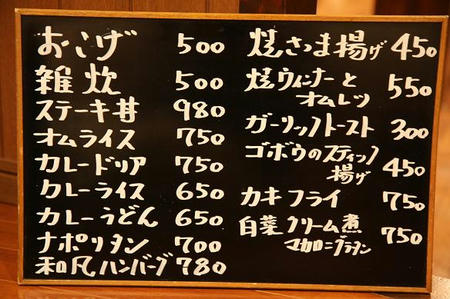 おこげ 500
雑炊 500
ステーキ丼 980
オムライス 750
カレードリア 750
カレーライス 650
カレーうどん 650
ナポリタン 700
和風ハンバーグ 780
焼さつま揚げ 450
焼ウィンナーと
オムレツ 550
ガーリックトースト 300
ゴボウのスティック
揚げ 450
カキフライ 750
白菜クリーム煮 750
マカロニグラタン